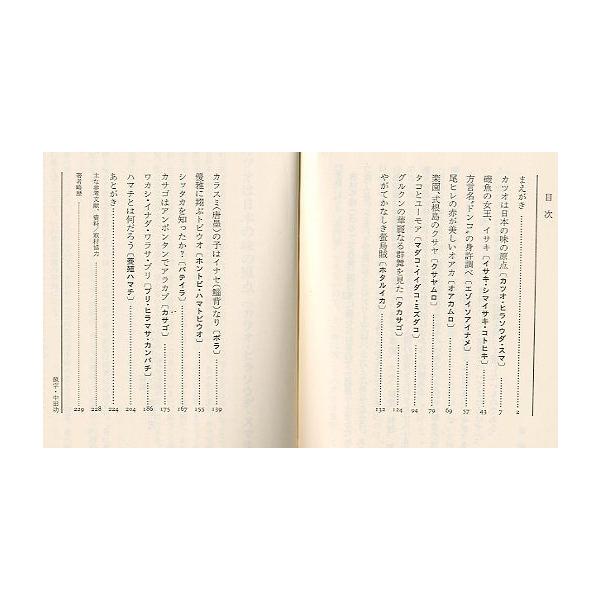 目次
まえがき……2
カツオは日本の味の原点〔カツオ・ヒラソウダ・スマ〕……7
磯魚の女王、イサキ〔イサキ・シマイサキ・コトヒキ〕……43
方言名〝ドンコ〟の身許調べ〔エゾイソアイナメ〕……57
尾ヒレの赤が美しいオアカ〔オアカムロ〕……69
楽園、式根島のクサヤ〔クサヤムロ〕……79
タコとユーモア〔マダコ・イイダコ・ミズダコ〕……94
グルクンの華麗なる群舞を見た〔タカサゴ〕……124
やがてかなしき螢烏賊〔ホタルイカ〕……132
カラスミ〈唐墨〉の子はイナセ〈鯔背〉なり〔ボラ〕……139
優雅に翔ぶトビウオ〔ホントビ・ハマトビウオ〕……155
シッタカを知ったか?〔バテイラ〕……167
カサゴはアンポンタンでアラカブ〔カサゴ〕……175
ワカシ・イナダ・ワラサ・ブリ〔ブリ・ヒラマサ・カンパチ〕……186
ハマチとは何だろう〔養殖ハマチ〕……204
あとがき……224
主な参考文献、資料/取材協力……228
著者略歴……229
題字・中田功